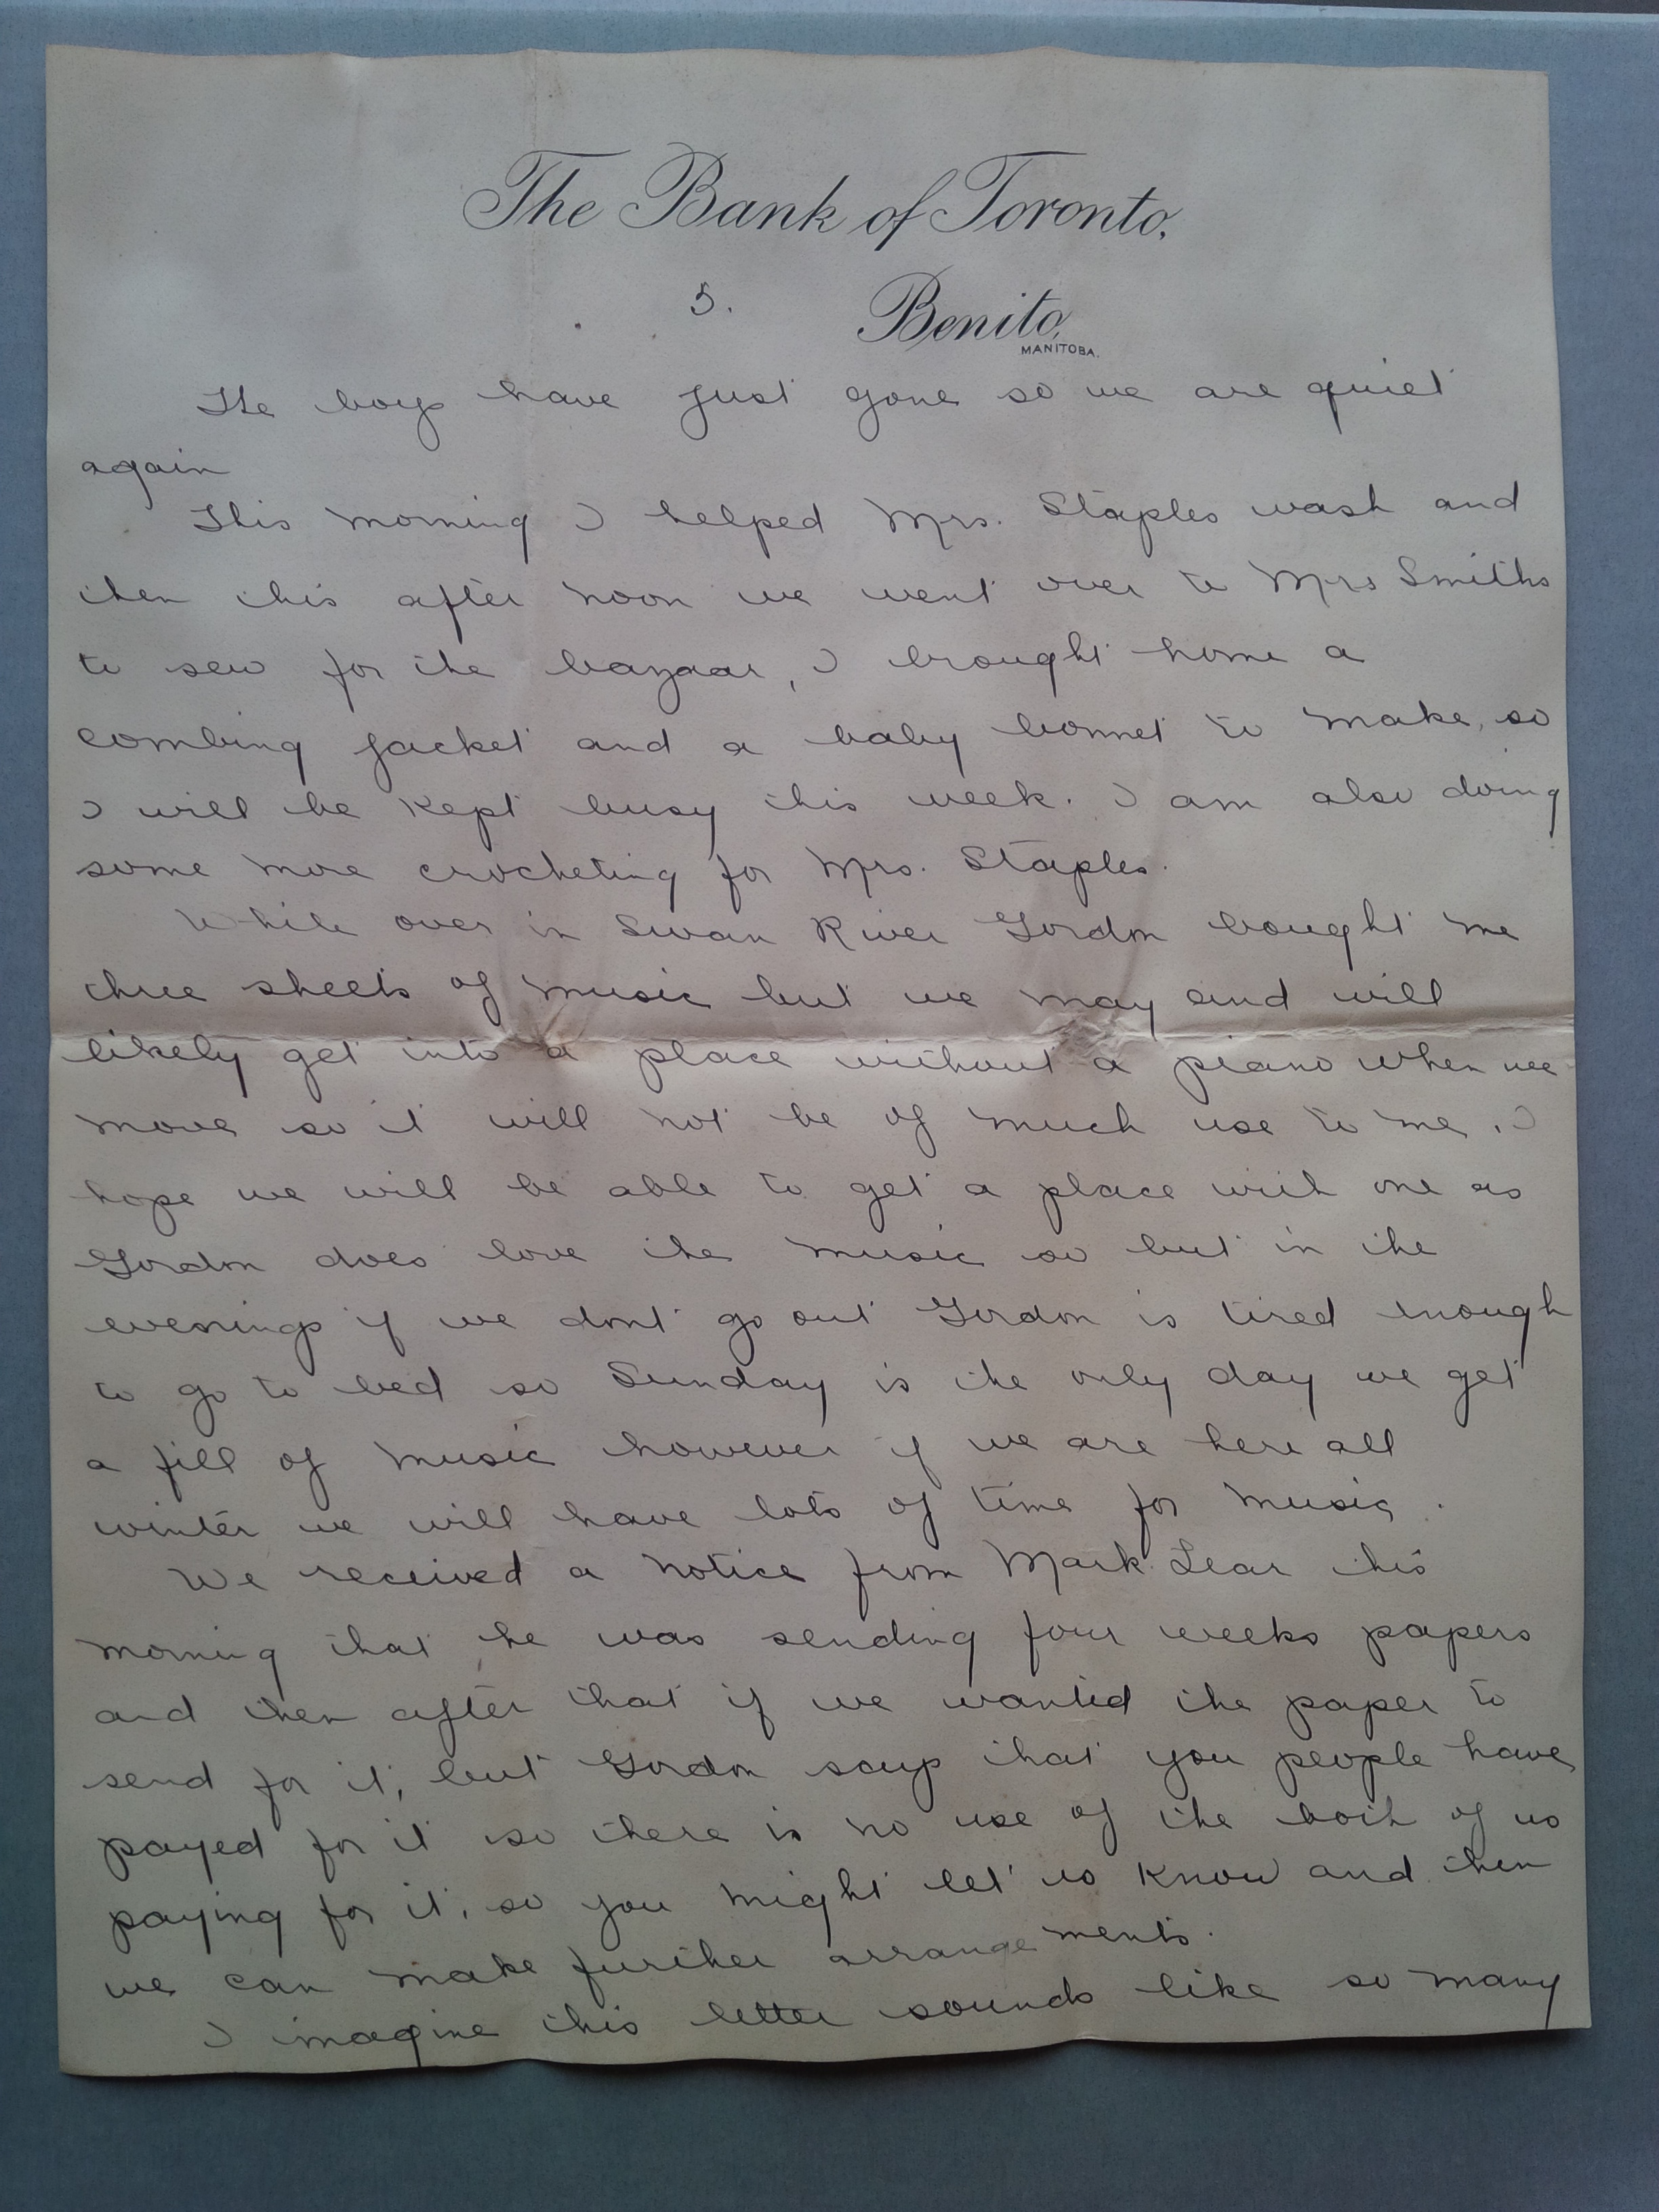 The Bank of Toronto,
5. Benito,
MANITOBA.
The boys have just gone so we are quiet
again
This morning I helped Mrs. Staples wash and
then this after noon we went over to Mrs Smiths
to sew for the bazaar, I brought home a
combing jacket and a baby bonnet to make, so
I will be kept busy this week. I am also doing
some more crocheting for Mrs. Staples.
While over in Swan River Gordon bought me
three sheets of music but we may and will
likely get into a place without a piano when we
move so it will not be of much use to me. I
hope we will be able to get a place with one as
Gordon does love the music so but in the
evenings if we dont go out Gordon is tired enough
to go to bed so Sunday is the only day we get
a fill of music however if we are here all
winter we will have lots of time for music.
We received a notice from Mark Lear this
morning that he was sending four weeks papers
and then after that if we wanted the paper to
send for it, but Gordon says that you people have
payed for it so there is no use of the both of us
paying for it, so you might let us know and then
we can make further arrangements.
I imagine this letter sounds like so many